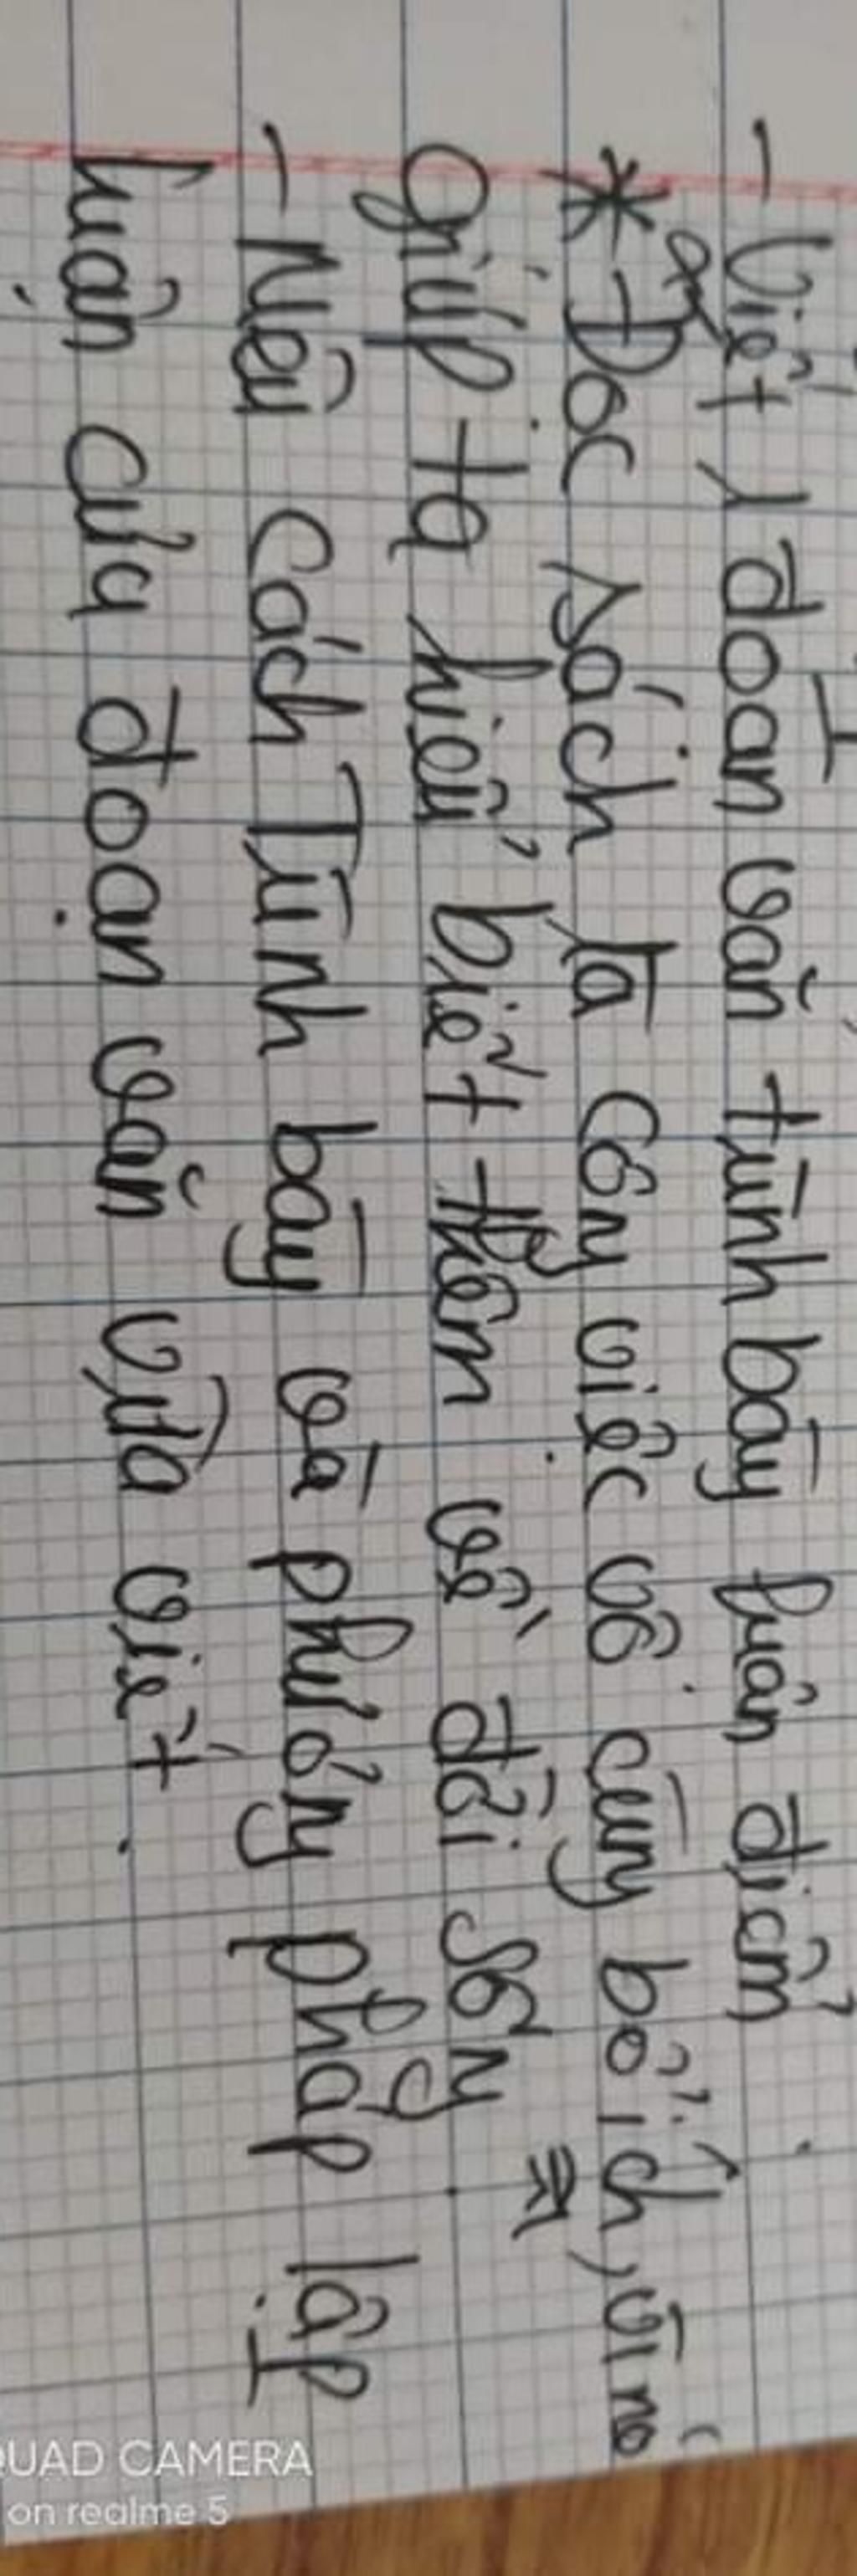 - Viết 1 đoạn văn trình bày luận điểm
* Đọc sách là công việc vô cùng bổ ích, vì nó
giúp ta hiểu biết thêm về đời sống.
- Nêu cách Trình bày và phương pháp lập
luận của đoạn văn vừa viết.
QUAD CAMERA
on realme 5